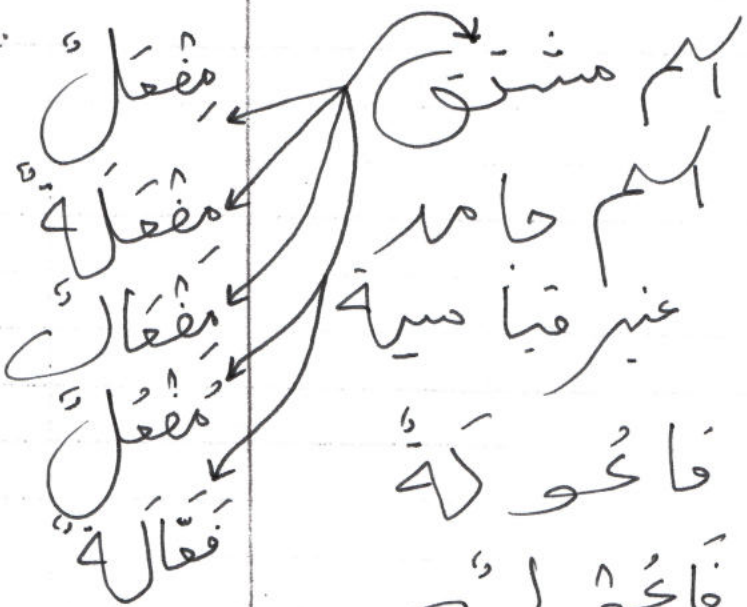 اسم مشتق
اسم جامد
غير قياسية
فَاعُولَةٌ
مِفْعَلٌ
مِفْعَلَةٌ
مِفْعَالٌ
مُفْعُلٌ
فَعَّالَةٌ